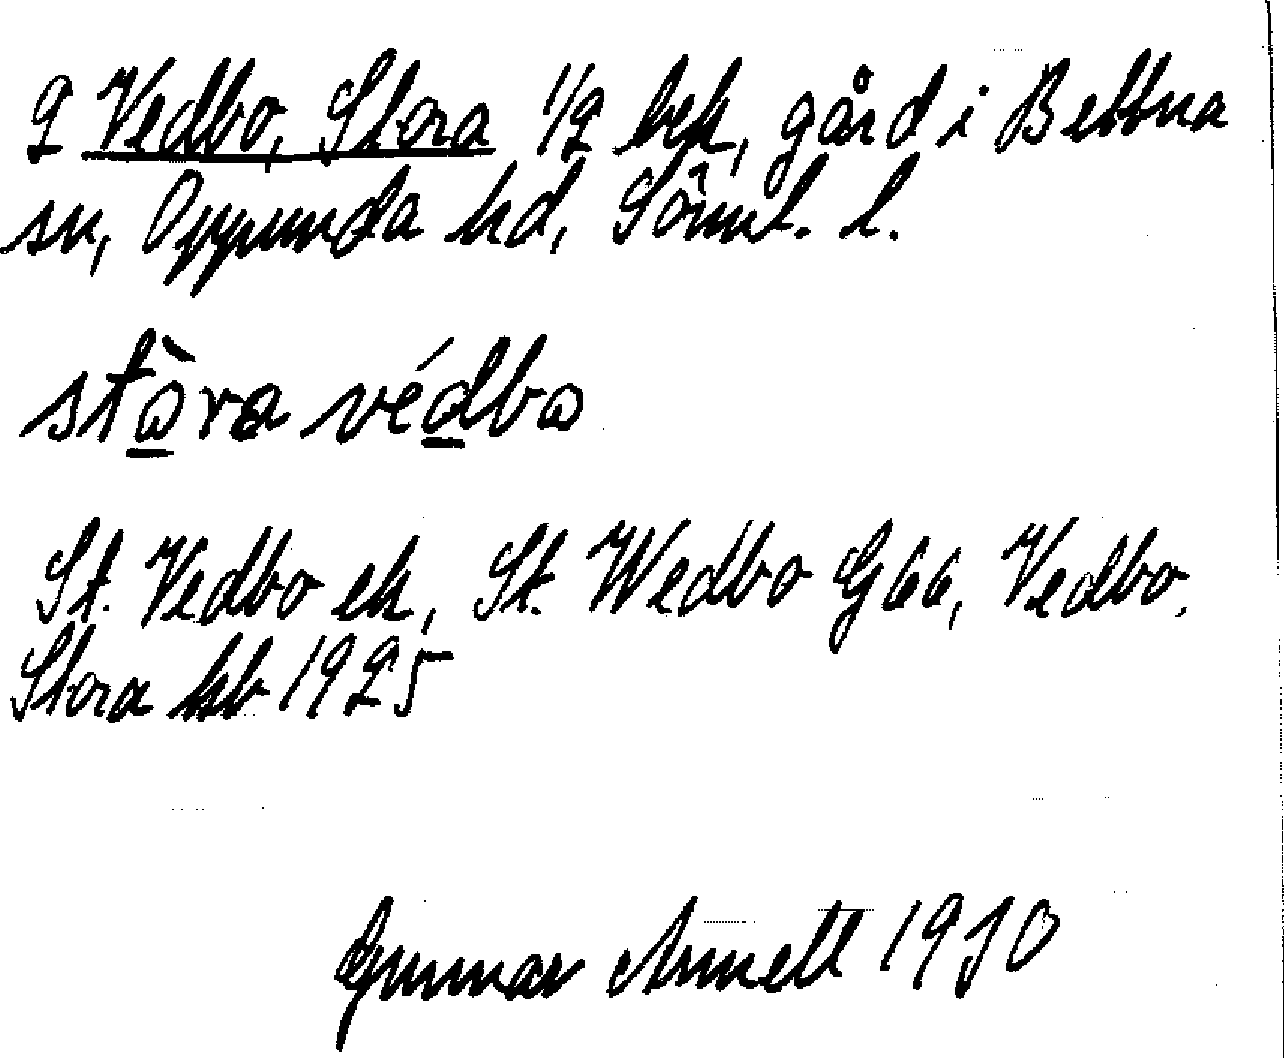 2 Vedbo, Stora 1/2 bck, gård i Bettna
sn, Oppunda hd, Söml. l.
stòra védbo
St. Vedbo ek, St. Wedbo G66, Vedbo,
Stora hb 1925
Gunnar 1930